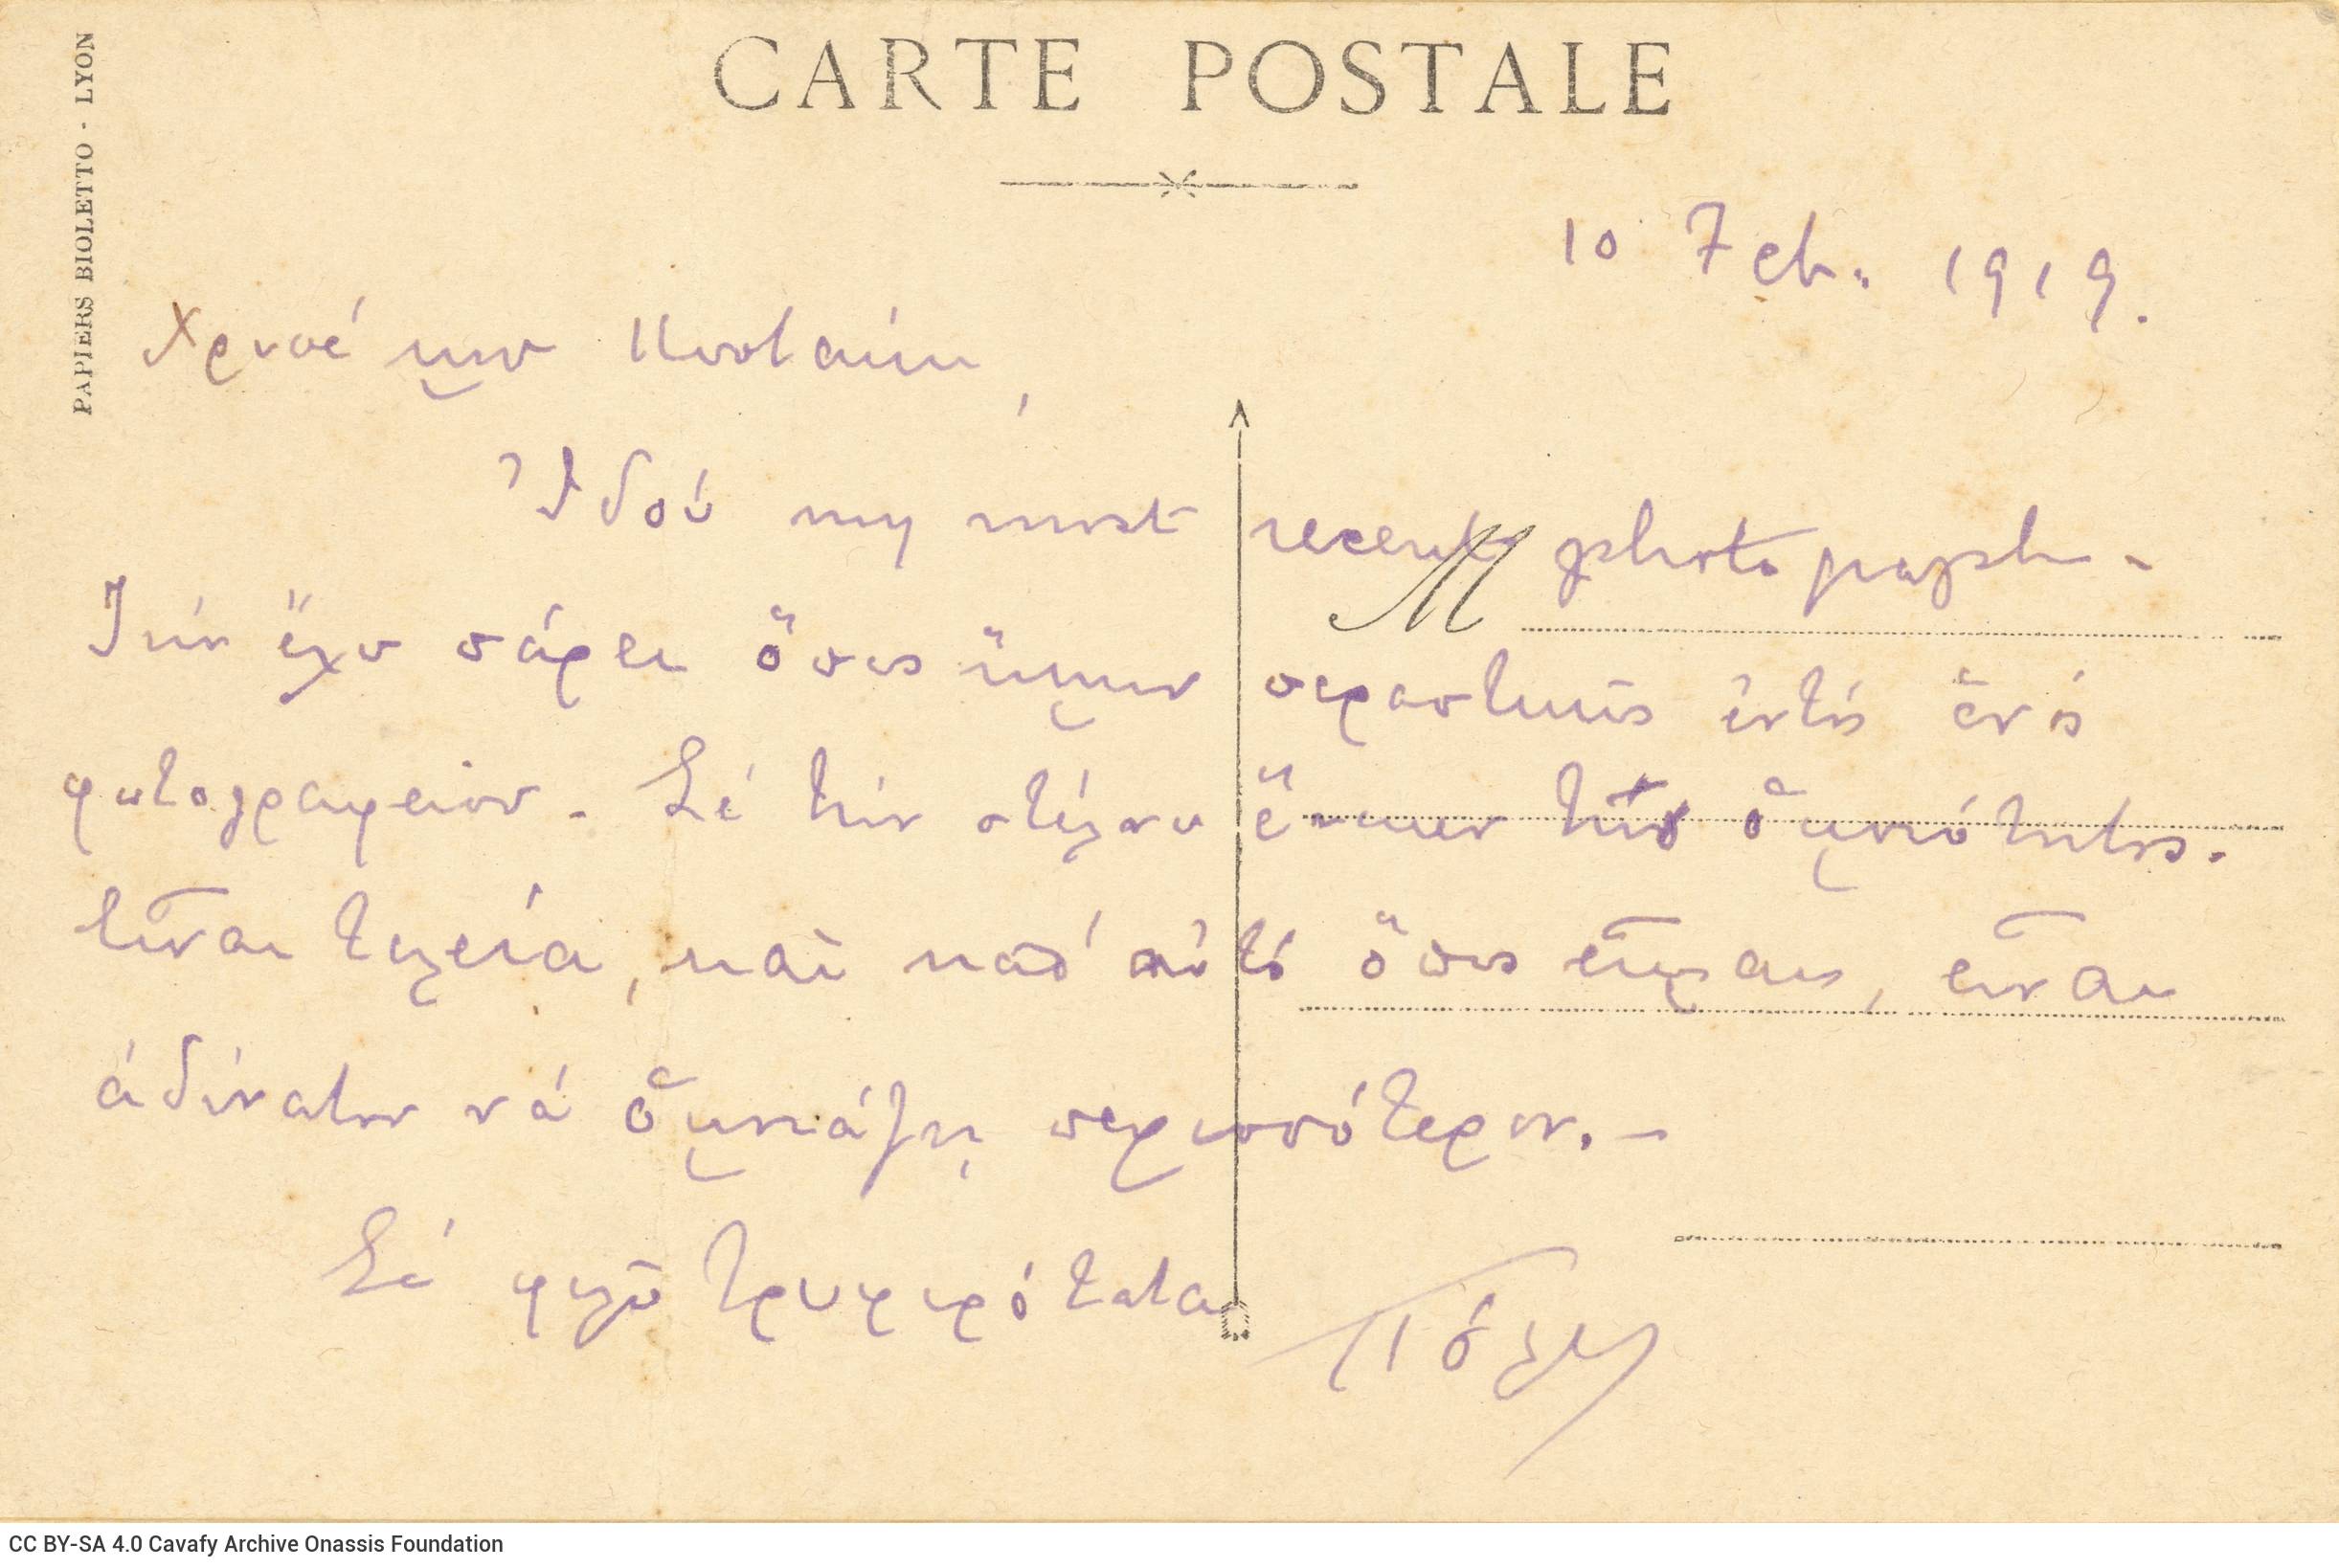 CARTE POSTALE
PAPIERS BIOLETTO - LYON
10 Feb. 1919.
Χρυσέ μου Κωσταίκη,
Ἰδού my most recent photograph.
Τήν ἔχω πάρει ὅπως ἤμην περαστικός ἐκτός ἑνός
φωτογραφείου. Σέ τήν στέλνω ἕνεκεν τῆς ὁμοιότητος.
Εἶναι τελεία, καί καθ' αὐτό ὅπως εἶμαι, εἶναι
ἀδύνατον νά ὁμοιάζῃ περισσότερον. -
M
Σέ φιλῶ τρυφερότατα
Πόλυς
CC BY-SA 4.0 Cavafy Archive Onassis Foundation